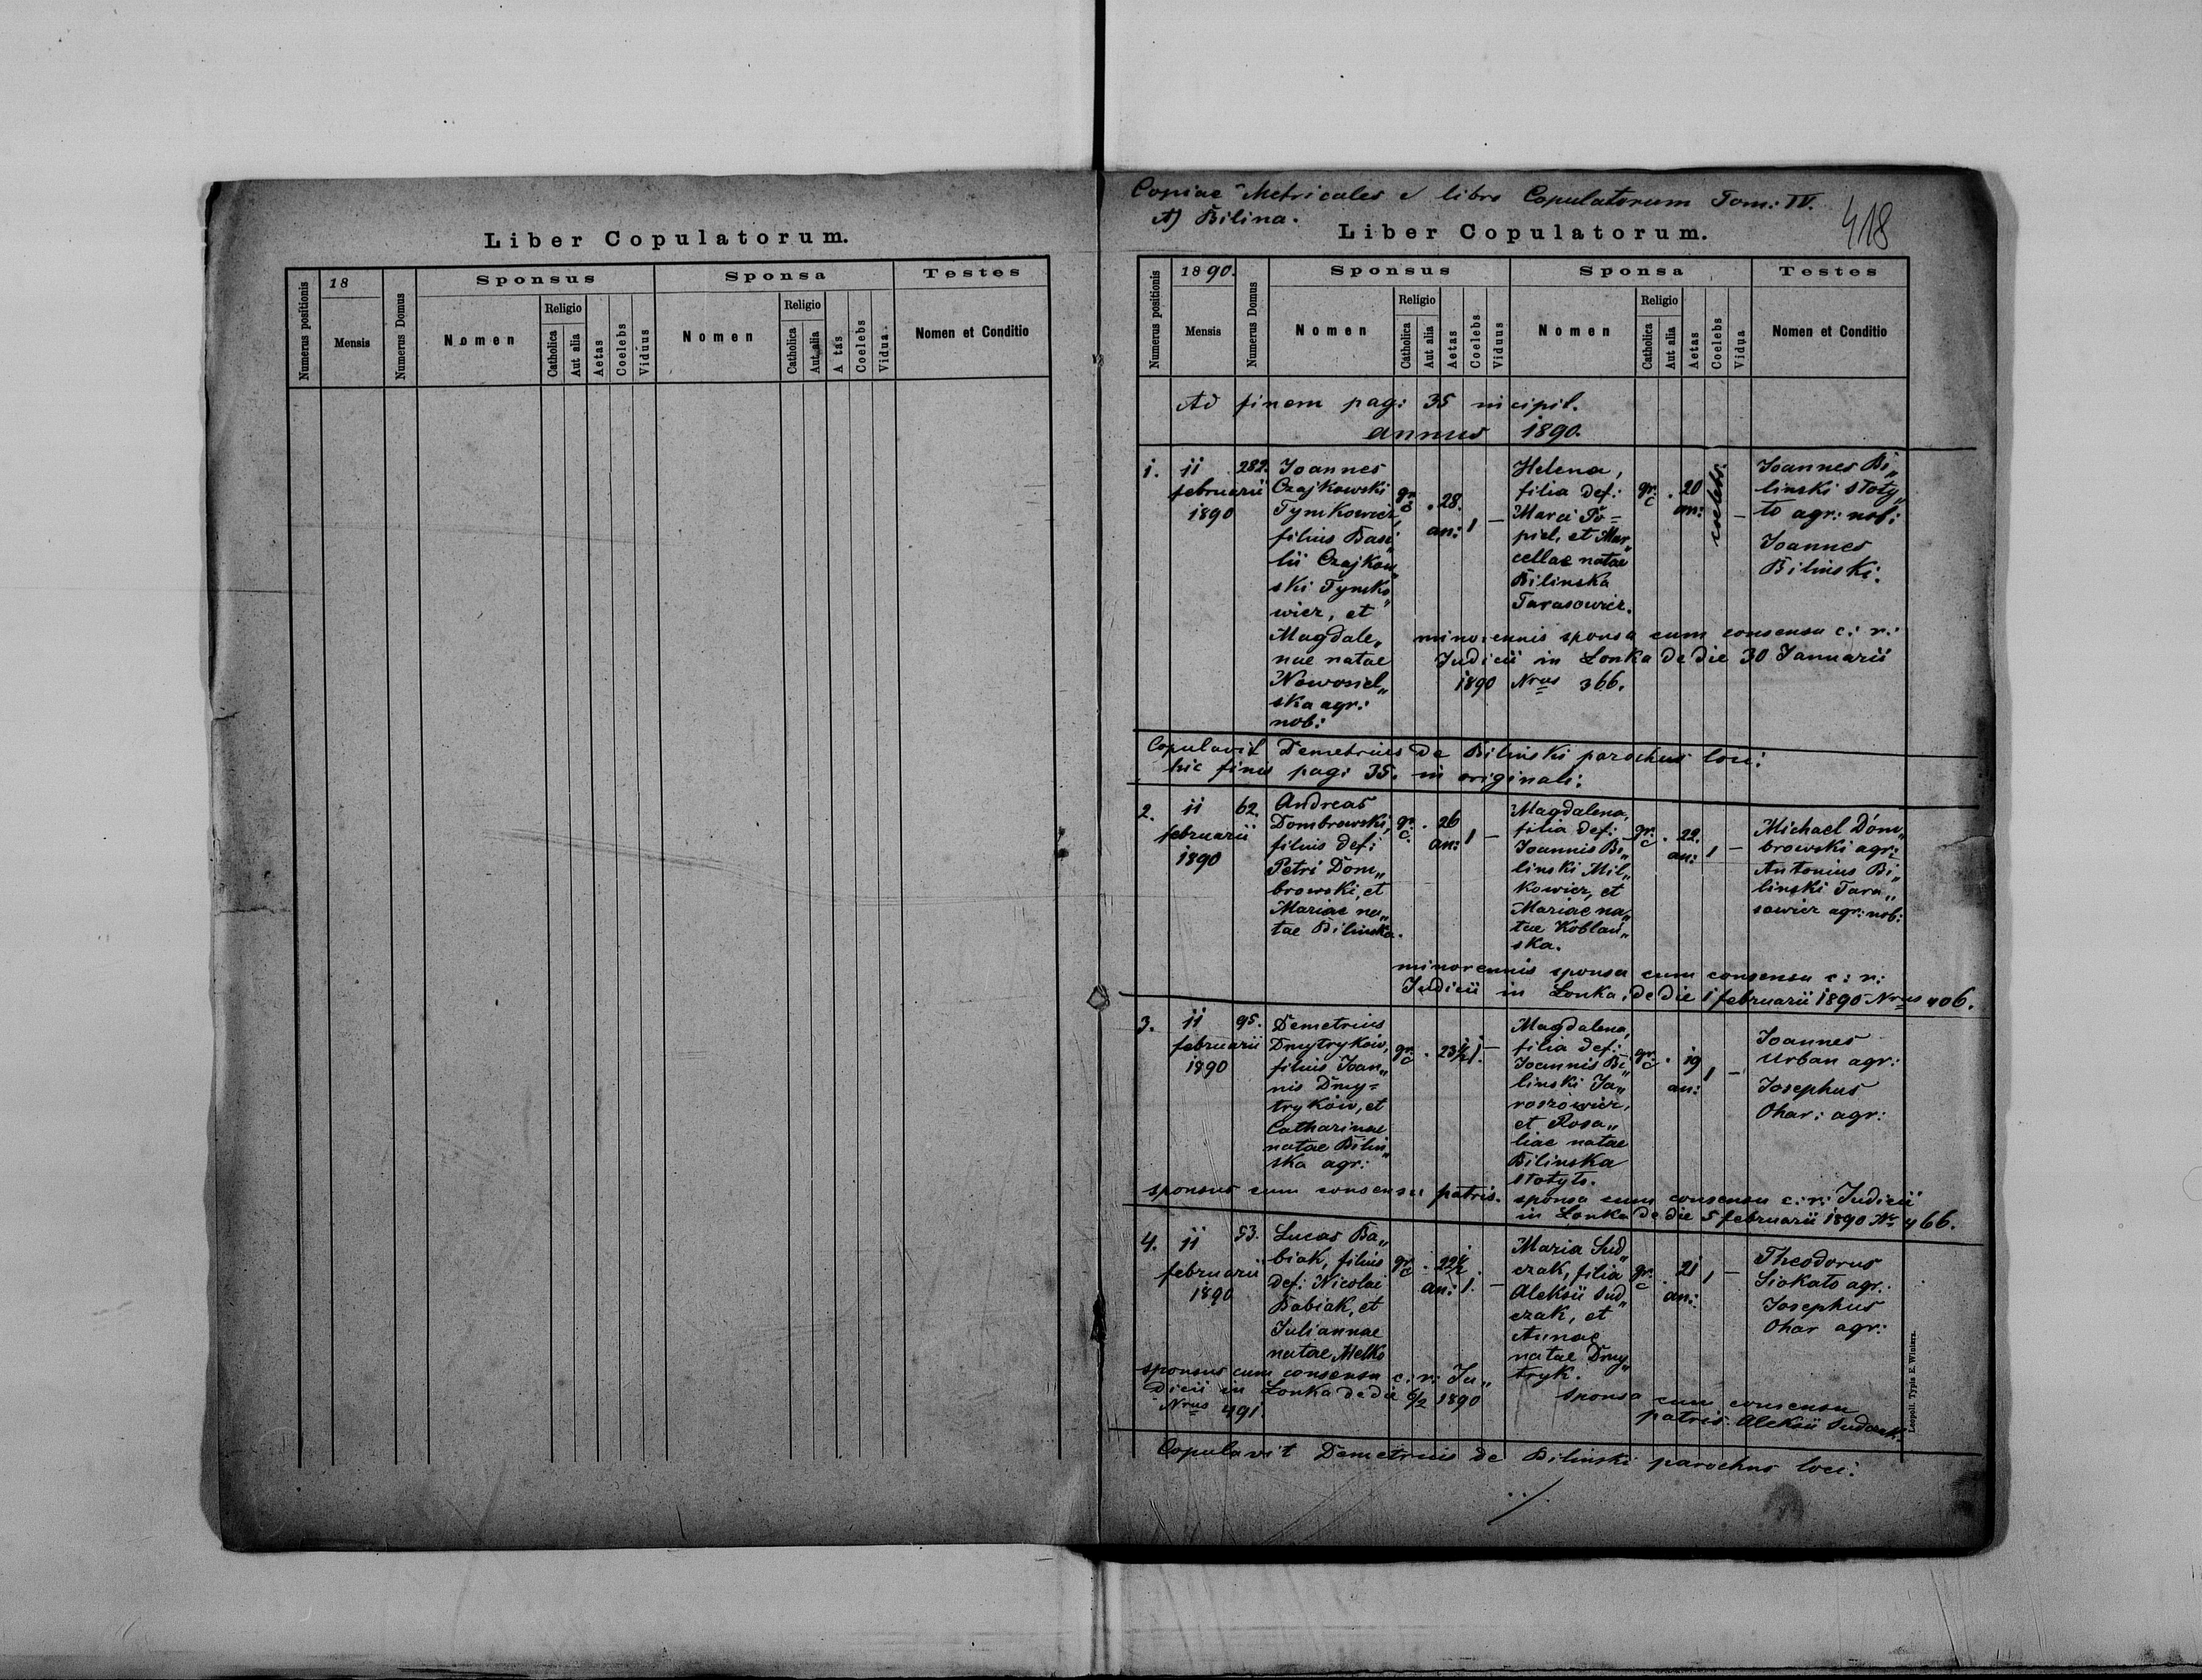 Liber Copulatorum.
Numerus positionis
18
Mensis
Numerus Domus
Sponsus
Nomen
Religio
Catholica
Aut alia
Aetas
Coelebs
Viduus
Sponsa
Nomen
Religio
Catholica
Aut alia
A tas
Coelebs
Vidua.
Testes
Nomen et Conditio
Copiae Metricales e libro Copulatorum Tom: IV.
A) Bilina.
418
Liber Copulatorum.
Numerus positionis
1890.
Mensis
Numerus Domus
Sponsus
Nomen
Religio
Catholica
Aut alia
Aetas
Coelebs
Viduus
Sponsa
Nomen
Religio
Catholica
Aut alia
Aetas
Coelebs
Vidua
Testes
Nomen et Conditio
Ad finem pag: 35 incipit.
annus 1890.
1.
11
februarii
1890
282.
Joannes
Czajkowski
Tymkowicz,
filius Basi„
lii Czajkow„
ski Tymko„
wicz, et
Magdale„
nae natae
Nowosiel„
ska agr:
nob:
gr:
c
28.
an:
1
–
Helena,
filia def:
Marci Po=
piel, et Mar„
cellae natae
Bilinska
Tarasowicz.
gr:
c
20
an:
coelebs:
–
Joannes Bi„
linski Stoty„
to agr: nob:
Joannes
Bilinski.
minorennis sponsa cum consensu c: r:
Judicii in Lonka de die 30 Januarii
1890 Nrus 366.
Copulavit Demetrius de Bilinski parochus loci:
hic finis pag: 35. in originali:
2.
11
februarii
1890
62.
Andreas
Dombrowski,
filius def:
Petri Dom„
browski, et
Mariae na„
tae Bilinska.
gr:
c.
26
an:
1
–
Magdalena,
filia def:
Joannis Bi„
linski Mil„
kowicz, et
Mariae na„
tae Koblan„
ska.
gr:
c
22.
an:
1
–
Michael Dom„
browski agr:
Antonius Bi„
linski Tara„
sowicz agr: nob:
minorennis sponsa cum consensu c: r:
Judicii in Lonka, de die 1 februarii 1890 Nrus 406.
3.
11
februarii
1890
95.
Demetrius
Dmytryków,
filius Joan„
nis Dmy=
tryków, et
Catharinae
natae Bilin„
ska agr:
gr:
c
23½
1.
–
Magdalena,
filia def:
Joannis Bi„
linski Ja„
roszowicz,
et Rosa„
liae natae
Bilinska
Stotyto.
gr:
c
19
an:
1
–
Joannes
Urban agr:
Josephus
Ohar: agr:
sponsus cum consensu patris.
sponsa cum consensu c: r: Judicii
in Lonka de die 5 februarii 1890 Nr 466.
4.
11
februarii
1890
53.
Lucas Ba„
biak, filius
def: Nicolai
Babiak, et
Juliannae
natae Melko
gr:
c
22½
an:
1.
–
Maria Sud„
czak, filia
Aleksii Sud„
czak, et
Annae
natae Dmy„
tryk.
gr:
c
21
an:
1
–
Theodorus
Siokato agr:
Josephus
Ohar agr:
sponsus cum consensu c: r: Ju„
dicii in Lonka de die 6/2 1890
Nrus 491.
sponsa cum consensu
patris Aleksii Sudczak.
Copulavit Demetrius de Bilinski parochus loci:
./.
Leopoli. Typis E. Winiarz.